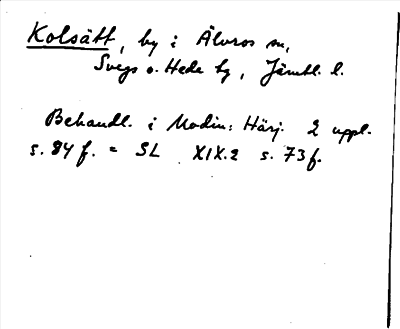 Kolsätt, by i Älvros sn,
Svegs o. Hede tg, Jämtl. l.
Behandl. i Modin: Härj. 2 uppl.
s. 84 f. = SL XIX.2 s. 73 f.